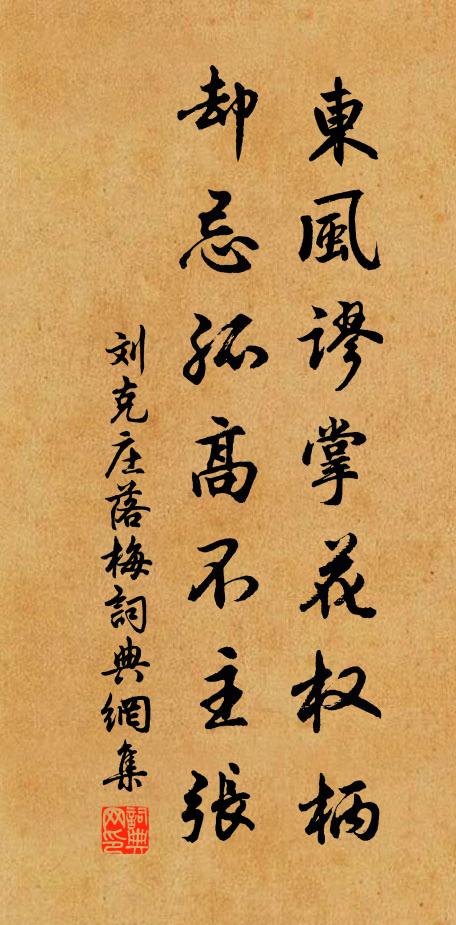 東風謬掌花权柄
却忌孤高不主張
刘克庄落梅詞典網集
詞典网印